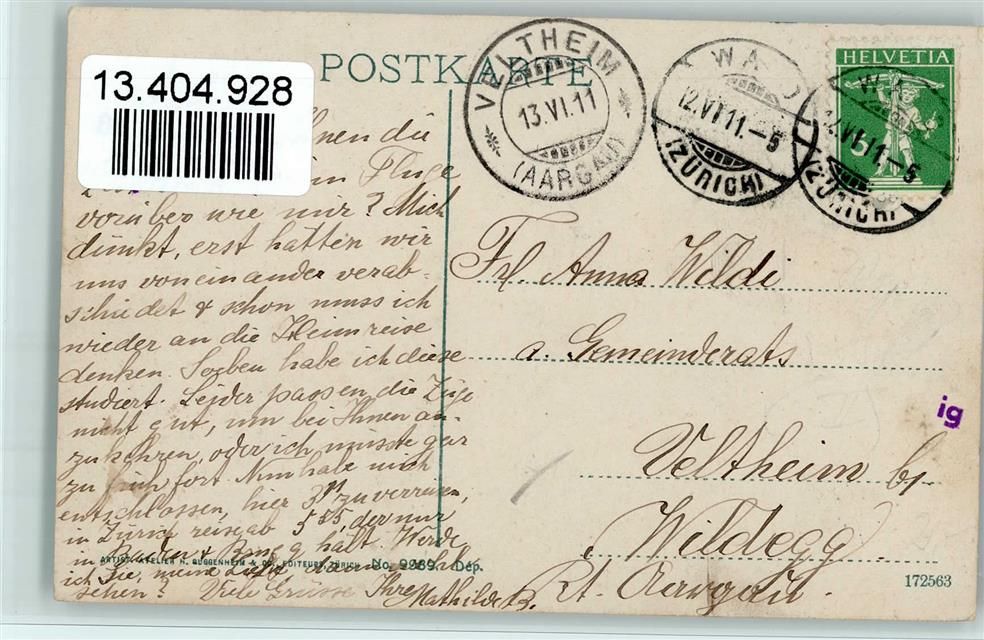 13.404.928
POSTKARTE
VELTHEIM
13.VI.11
(AARGAU)
WALD
12.VI.11.-5
(ZÜRICH)
HELVETIA
5
WALD
12.VI.11.-5
(ZÜRICH)
Ihnen die
im Fluge
vorüber wie mir? Mich
dünkt, erst hätten wir
uns voneinander verab-
schiedet & schon muss ich
wieder an die Heimreise
denken. Soeben habe ich diese
studiert. Leider passen die Züge
nicht gut, um bei Ihnen an-
zukehren, oder ich müsste gar
zu früh fort. Nun habe mich
entschlossen, hier 3 zu verreisen,
in Zürich reise ab 5 55, der nur
in Baden & Brugg hält. Werde
ich Sie, meine
sehen? Viele Grüsse Ihre Mathilde B.
Frl. Anna Wildi
a. Gemeinderats
Veltheim by
Wildegg
Kt. Aargau.
ig
ARTIST. ATELIER H. GUGGENHEIM & CO., EDITEURS, ZÜRICH No. 9989 Dép.
172563